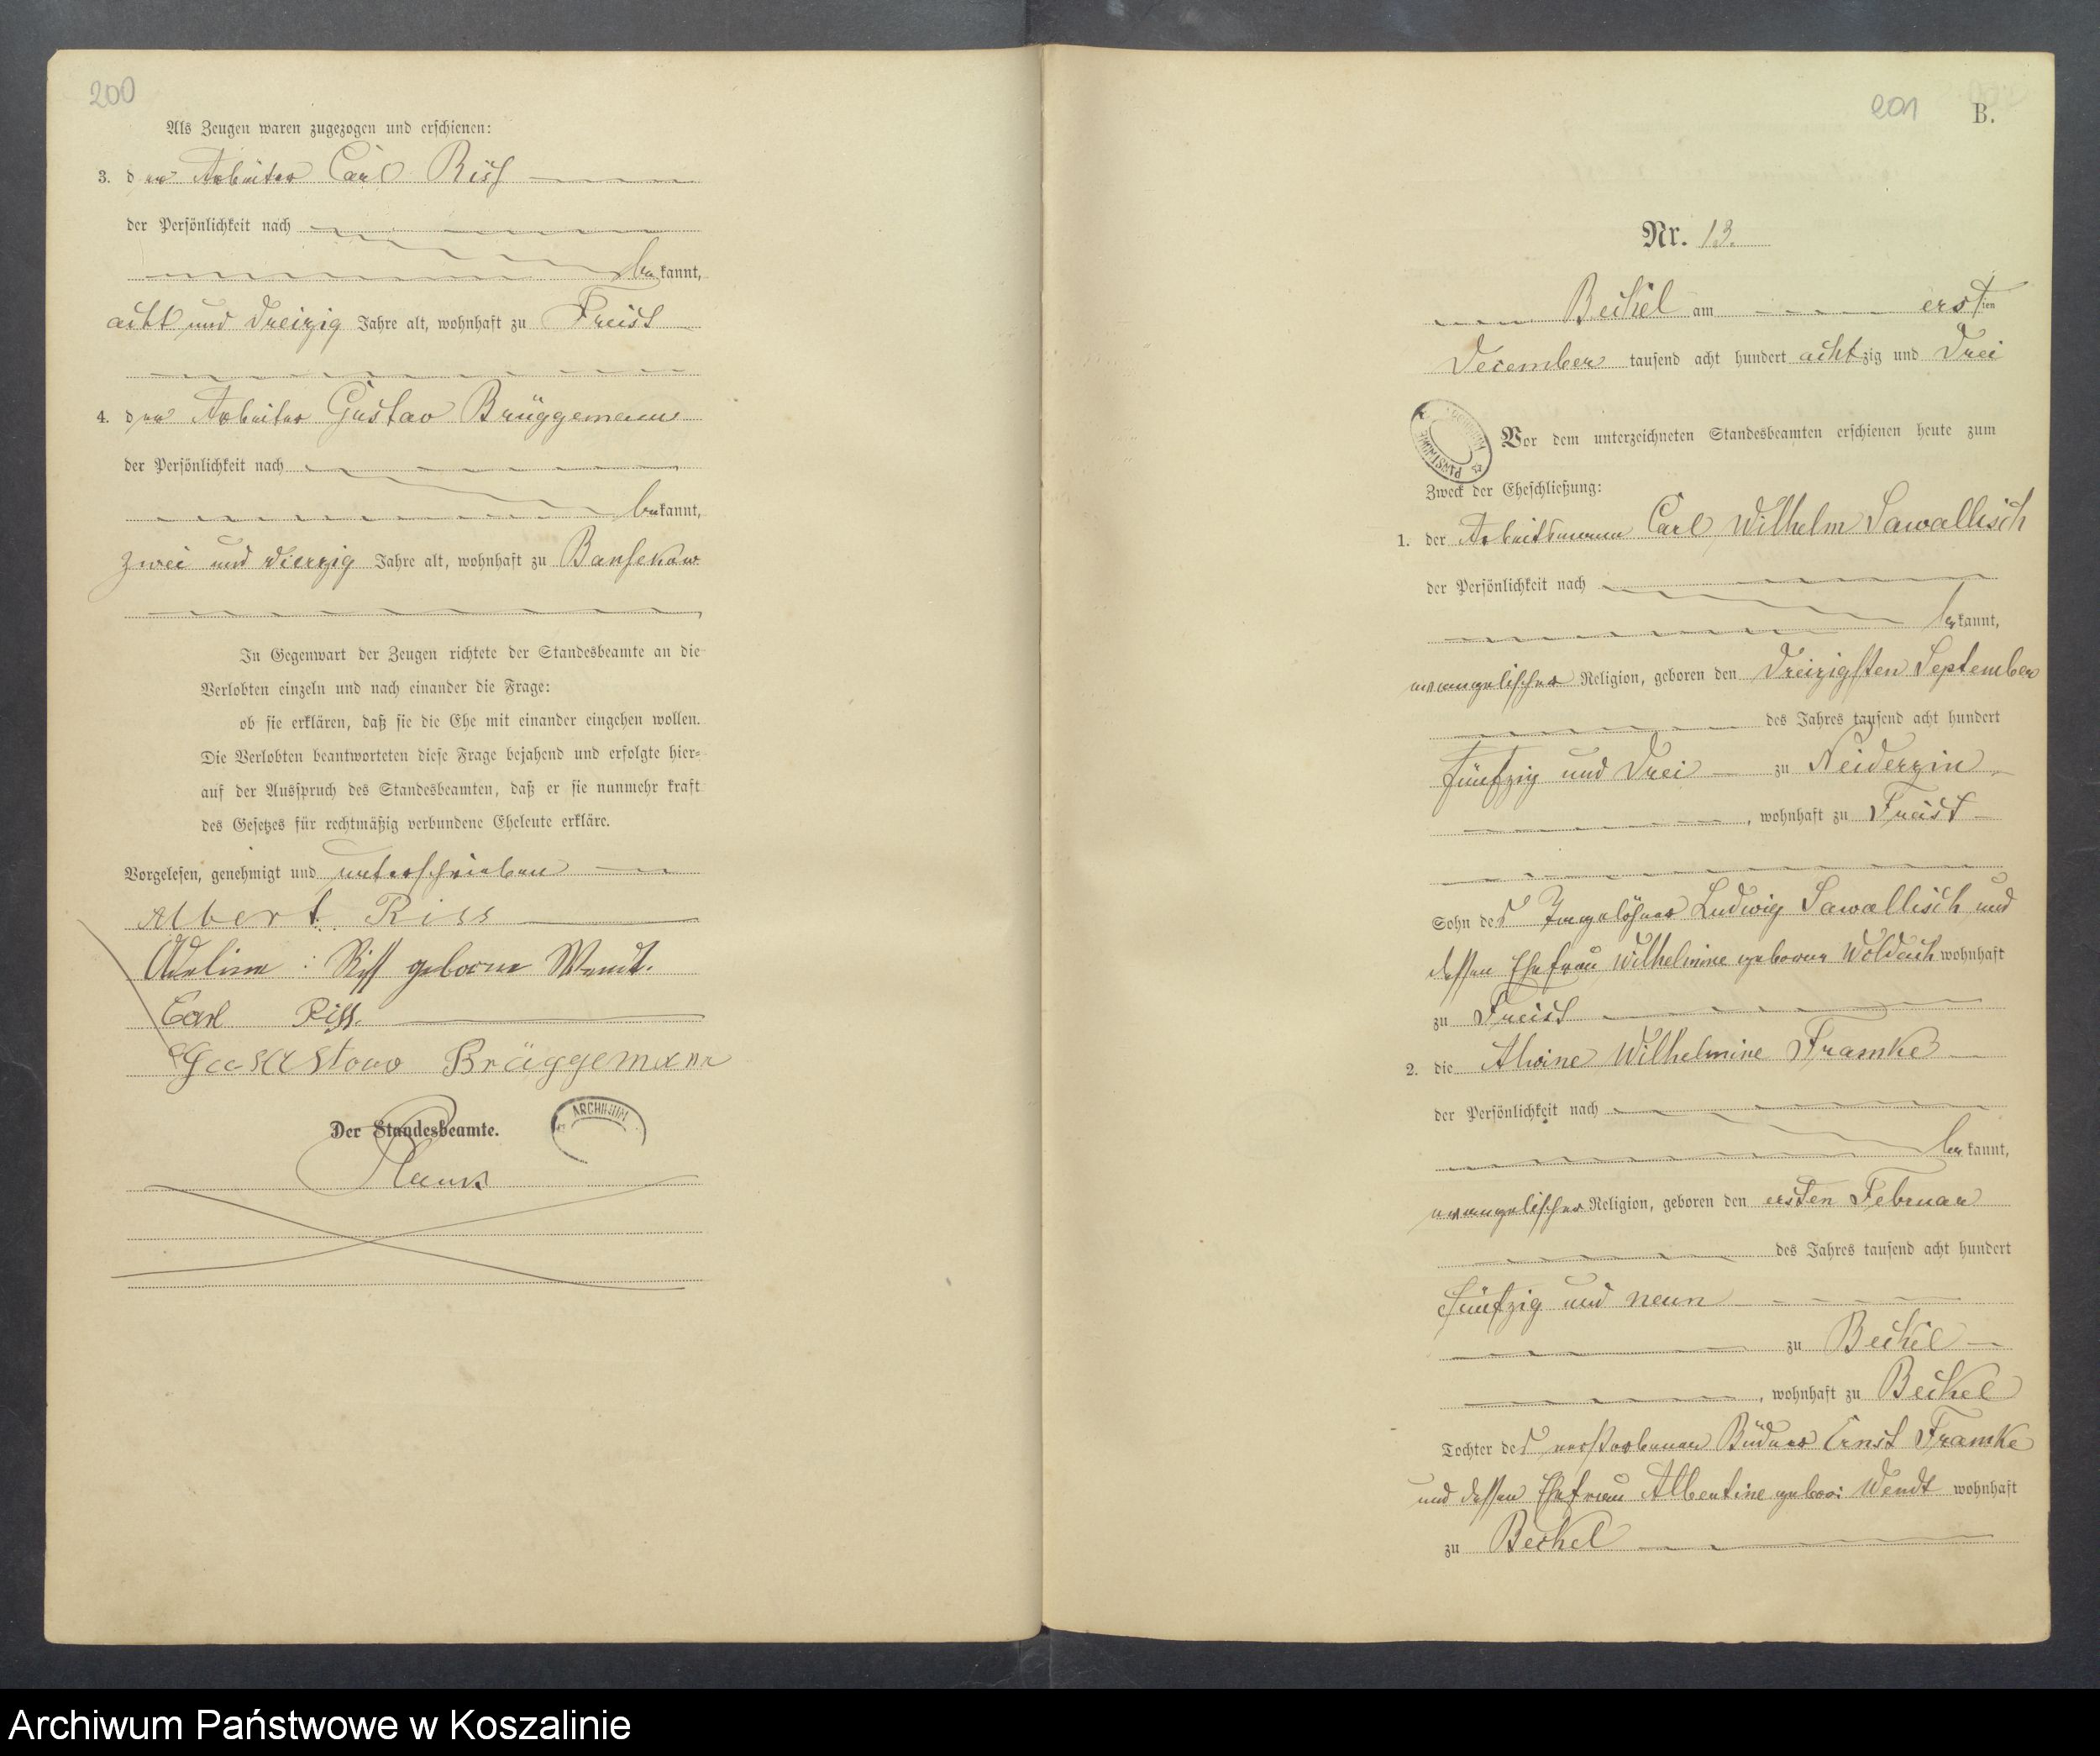 200
Als Zeugen waren zugezogen und erschienen:
3. der Arbeiter Carl Riss
der Persönlichkeit nach
bekannt,
acht und dreizig Jahre alt, wohnhaft zu Freist
4. der Arbeiter Gustav Brüggemann
der Persönlichkeit nach
bekannt,
zwei und vierzig Jahre alt, wohnhaft zu Bansekow
In Gegenwart der Zeugen richtete der Standesbeamte an die
Verlobten einzeln und nach einander die Frage:
ob sie erklären, daß sie die Ehe mit einander eingehen wollen.
Die Verlobten beantworteten diese Frage bejahend und erfolgte hier-
auf der Ausspruch des Standesbeamten, daß er sie nunmehr kraft
des Gesetzes für rechtmäßig verbundene Eheleute erkläre.
Vorgelesen, genehmigt und unterschrieben
Albert Riss
Adeline Riss geborne Wendt.
Carl Riss.
Brüggemann
Der Standesbeamte.
ARCHIWUM
201
B.
Nr. 13.
Beckel am ersten
December tausend acht hundert achtzig und drei
Vor dem unterzeichneten Standesbeamten erschienen heute zum
Zweck der Eheschließung:
1. der Arbeitsmann Carl Wilhelm Sawallisch
der Persönlichkeit nach
bekannt,
evangelischer Religion, geboren den dreizigsten September
des Jahres tausend acht hundert
fünfzig und drei zu Neiderzin
, wohnhaft zu Freist
Sohn des Tagelöhner Ludwig Sawallisch und
dessen Ehefrau Wilhelmine geborne Woldach wohnhaft
zu Freist
2. die Alwine Wilhelmine Framke
der Persönlichkeit nach
bekannt,
evangelischer Religion, geboren den ersten Februar
des Jahres tausend acht hundert
fünfzig und neun
zu Beckel
, wohnhaft zu Beckel
Tochter des verstorbenen Büdners Ernst Framke
und dessen Ehefrau Albertine gebor: Wendt wohnhaft
zu Beckel
Archiwum Państwowe w Koszalinie